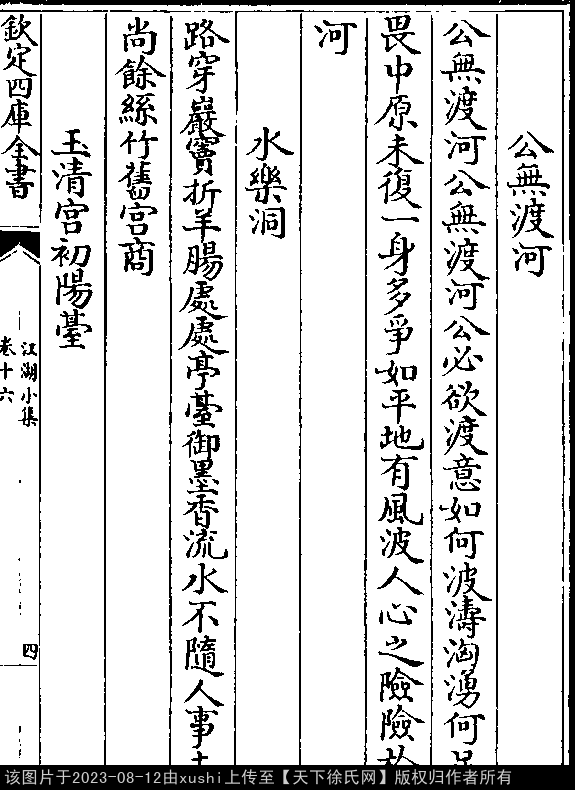 公無渡河
公無渡河公無渡河公必欲渡意如何波濤洶湧何足
畏中原未復一身多爭如平地有風波人心之險險於
河
水樂洞
路穿巖竇折羊腸處處亭臺御墨香流水不隨人事
尚餘絲竹舊宫商
玉清宫初陽臺
欽定四庫全書
江湖小集
卷十六
四
该图片于2023-08-12由xushi上传至【天下徐氏网】版权归作者所有